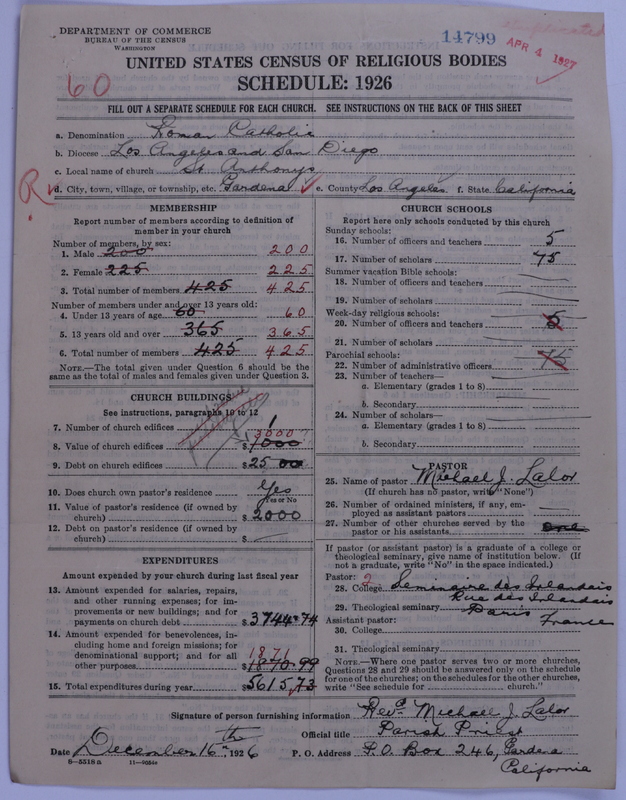 DEPARTMENT OF COMMERCE
BUREAU OF THE CENSUS
WASHINGTON
14799
APR 4 1927
60
UNITED STATES CENSUS OF RELIGIOUS BODIES
SCHEDULE: 1926
FILL OUT A SEPARATE SCHEDULE FOR EACH CHURCH. SEE INSTRUCTIONS ON THE BACK OF THIS SHEET
a. Denomination Roman Catholic
b. Diocese Los Angeles and San Diego
c. Local name of church St. Anthonys
R
d. City, town, village, or township, etc. Gardena e. County Los Angeles f. State California
MEMBERSHIP
Report number of members according to definition of
member in your church
Number of members, by sex:
1. Male 200 200
2. Female 225 225
3. Total number of members 425 425
Number of members under and over 13 years old:
4. Under 13 years of age 60 60
5. 13 years old and over 365 365
6. Total number of members 425 425
NOTE.—The total given under Question 6 should be the
same as the total of males and females given under Question 3.
CHURCH BUILDINGS
See instructions, paragraphs 10 to 12
7. Number of church edifices 1
3000
8. Value of church edifices $ 7000
9. Debt on church edifices $ 25 00
10. Does church own pastor's residence Yes
Yes or No
11. Value of pastor's residence (if owned by
church) $ 2000
12. Debt on pastor's residence (if owned by
church) $
EXPENDITURES
Amount expended by your church during last fiscal year
13. Amount expended for salaries, repairs,
and other running expenses; for im-
provements or new buildings; and for
payments on church debt $ 3744 74
14. Amount expended for benevolences, in-
cluding home and foreign missions; for
denominational support; and for all
1871
other purposes $ 1870.99
15. Total expenditures during year $ 5615,73
CHURCH SCHOOLS
Report here only schools conducted by this church
Sunday schools:
16. Number of officers and teachers 5
17. Number of scholars 75
Summer vacation Bible schools:
18. Number of officers and teachers
19. Number of scholars
Week-day religious schools:
20. Number of officers and teachers 5
21. Number of scholars
Parochial schools: 75
22. Number of administrative officers
23. Number of teachers—
a. Elementary (grades 1 to 8)
b. Secondary
24. Number of scholars—
a. Elementary (grades 1 to 8)
b. Secondary
PASTOR
25. Name of pastor Michael J. Lalor
(If church has no pastor, write "None")
26. Number of ordained ministers, if any, em-
ployed as assistant pastors
27. Number of other churches served by the
pastor or his assistants One
If pastor (or assistant pastor) is a graduate of a college or
theological seminary, give name of institution below. (If
not a graduate, write "No" in the space indicated.)
Pastor: 2
28. College Seminaire des Irlandais
Rue des Irlandais
29. Theological seminary Paris
Assistant pastor: France
30. College
31. Theological seminary
NOTE.—Where one pastor serves two or more churches,
Questions 28 and 29 should be answered only on the schedule
for one of the churches; on the schedules for the other churches,
write "See schedule for church."
Signature of person furnishing information Revd. Michael J. Lalor
Official title Parish Priest
Date December 16th, 1926 P. O. Address P.O. Box 246, Gardena
California
8—5518a 11—9054a